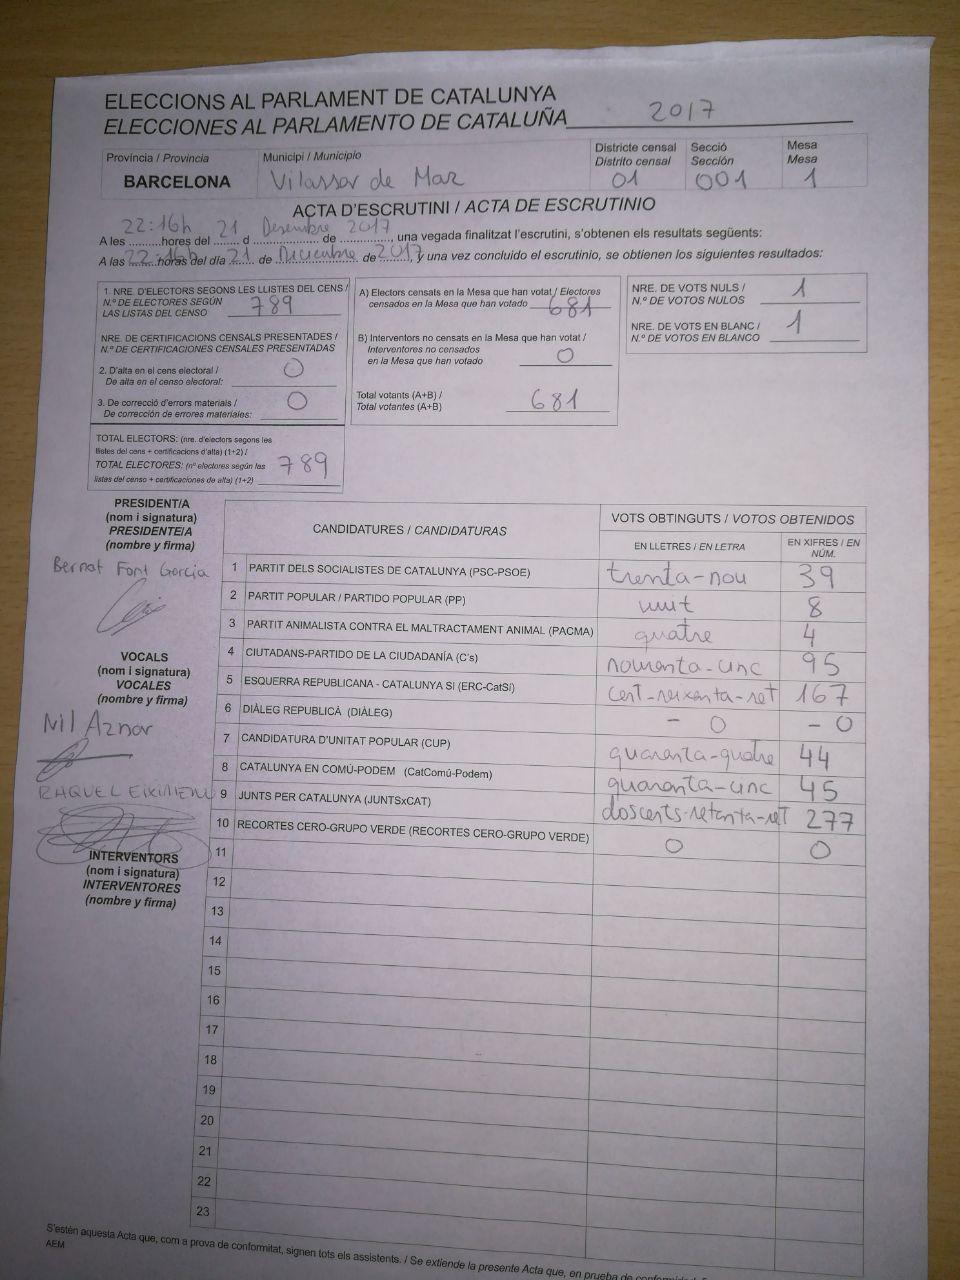 ELECCIONS AL PARLAMENT DE CATALUNYA
ELECCIONES AL PARLAMENTO DE CATALUÑA 2017
Província / Provincia
BARCELONA
Municipi / Municipio
Vilassar de Mar
Districte censal
Distrito censal
01
Secció
Sección
001
Mesa
Mesa
1
ACTA D'ESCRUTINI / ACTA DE ESCRUTINIO
A les 22:16h hores del 21 d Desembre de 2017, una vegada finalitzat l'escrutini, s'obtenen els resultats següents:
A las 22:16h horas del día 21 de Diciembre de 2017, y una vez concluido el escrutinio, se obtienen los siguientes resultados:
1. NRE. D'ELECTORS SEGONS LES LLISTES DEL CENS /
N.º DE ELECTORES SEGÚN
LAS LISTAS DEL CENSO 789
NRE. DE CERTIFICACIONS CENSALS PRESENTADES /
N.º DE CERTIFICACIONES CENSALES PRESENTADAS
2. D'alta en el cens electoral /
De alta en el censo electoral: 0
3. De correcció d'errores materials /
De corrección de errores materiales: 0
TOTAL ELECTORS: (nre. d'electors segons les
llistes del cens + certificacions d'alta) (1+2) /
TOTAL ELECTORES: (nº electores según las
listas del censo + certificaciones de alta) (1+2) 789
A) Electors censats en la Mesa que han votat / Electores
censados en la Mesa que han votado 681
B) Interventors no censats en la Mesa que han votat /
Interventores no censados
en la Mesa que han votado 0
Total votants (A+B) /
Total votantes (A+B) 681
NRE. DE VOTS NULS /
N.º DE VOTOS NULOS 1
NRE. DE VOTS EN BLANC /
N.º DE VOTOS EN BLANCO 1
PRESIDENT/A
(nom i signatura)
PRESIDENTE/A
(nombre y firma)
Bernat Font Garcia
VOCALS
(nom i signatura)
VOCALES
(nombre y firma)
Nil Aznar
RAQUEL EIXIMENI
INTERVENTORS
(nom i signatura)
INTERVENTORES
(nombre y firma)
CANDIDATURES / CANDIDATURAS
VOTS OBTINGUTS / VOTOS OBTENIDOS
EN LLETRES / EN LETRA
EN XIFRES / EN NÚM.
1 PARTIT DELS SOCIALISTES DE CATALUNYA (PSC-PSOE) trenta-nou 39
2 PARTIT POPULAR / PARTIDO POPULAR (PP) vuit 8
3 PARTIT ANIMALISTA CONTRA EL MALTRACTAMENT ANIMAL (PACMA) quatre 4
4 CIUTADANS-PARTIDO DE LA CIUDADANÍA (C's) noranta-cinc 95
5 ESQUERRA REPUBLICANA - CATALUNYA SI (ERC-CatSí) cent-seixanta-set 167
6 DIÀLEG REPUBLICÀ (DIÀLEG) - 0 - 0
7 CANDIDATURA D'UNITAT POPULAR (CUP) quaranta-quatre 44
8 CATALUNYA EN COMÚ-PODEM (CatComú-Podem) quaranta-cinc 45
9 JUNTS PER CATALUNYA (JUNTSxCAT) doscents-setanta-set 277
10 RECORTES CERO-GRUPO VERDE (RECORTES CERO-GRUPO VERDE) 0 0
11
12
13
14
15
16
17
18
19
20
21
22
23
S'estén aquesta Acta que, com a prova de conformitat, signen tots els assistents. / Se extiende la presente Acta que, en prueba de conformidad,
AEM